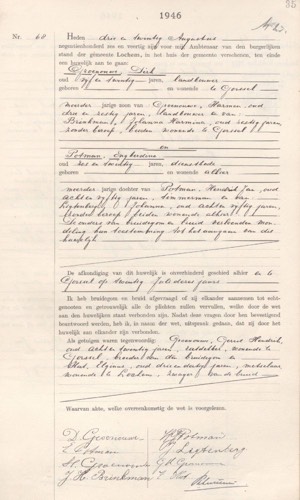 1946
35
Nr. 60
Heden drie en twintig Augustus
negentienhonderd zes en veertig zijn voor mij Ambtenaar van den burgerlijken
stand der gemeente Lochem, in het huis der gemeente verschenen, ten einde
een huwelijk aan te gaan:
Groenouwe, Dirk
oud vijf en twintig jaren, landbouwer
geboren en wonende te Gorssel
meerder jarige zoon van Groenouwe, Harmen, oud
drie en zestig jaren, landbouwer en van
Brinkman, Johanna Harmina, oud zestig jaren
zonder beroep, beiden wonende te Gorssel
en
Potman, Ingberdina
oud zes en twintig jaren, dienstbode
geboren en wonende alhier
meerder jarige dochter van Potman, Hendrik Jan, oud
acht en vijftig jaren, timmerman en van
Ligtenberg, Johanna, oud acht en vijftig jaren,
zonder beroep, beiden wonende alhier.
De ouders van bruidegom en bruid verklaarden mon-
deling hun toestemming tot het aangaan van dit
huwelijk
De afkondiging van dit huwelijk is onverhinderd geschied alhier en te
Gorssel op twintig juli dezes jaars
Ik heb bruidegom en bruid afgevraagd of zij elkander aannemen tot echt-
genooten en getrouwelijk alle de plichten zullen vervullen, welke door de wet
aan den huwelijken staat verbonden zijn. Nadat deze vragen door hen bevestigend
beantwoord werden, heb ik, in naam der wet, uitspraak gedaan, dat zij door het
huwelijk aan elkander zijn verbonden.
Als getuigen waren tegenwoordig: Groenouwe, Gerrit Hendrik,
oud acht en twintig jaren, wonende te
Gorssel, broeder van den bruidegom en
oud drie en dertig jaren,
wonende te Lochem, zwager van de bruid
Waarvan akte, welke overeenkomstig de wet is voorgelezen.
D. Groenouwe
H.J. Potman
I. Potman
J Ligtenberg
H. Groenouwe
G.H. Groenouwe
J. H. Brinkman